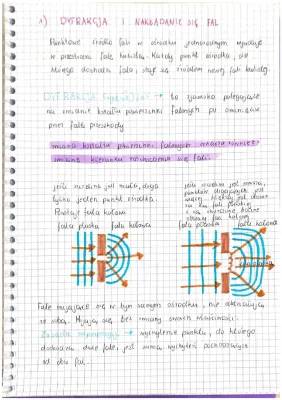 1) DYFRAKCJA I NAKŁADANIE SIĘ FAL
Punktowe źródło fali w ośrodku jednorodnym wysyła
w przestrzeń falę kulistą. Każdy punkt ośrodka, do
którego dochodzi fala, staje się źródłem nowej fali kulistej.
DYFRAKCJA to zjawisko polegające
na zmianie kształtu powierzchni falowych po ominięciu
przez falę przeszkody
zmiana kształtu powierzchni falowych oznacza również
zmianę kierunku rozchodzenia się fali.
jeśli szczelina jest mała, drga
tylko jeden punkt ośrodka.
Powstaje fala kolista
fala płaska fala kolista
jeśli szczelina jest
punktów drgających jest
więcej
fala płaska fala kolista
Fale biegnące w tym samym ośrodku, nie oddziałują
ze sobą. Mijają się bez zmiany swoich właściwości.
Zasada superpozycji wychylenie punktu, do którego
dochodzą dwie fale, jest sumą wychyleń pochodzących
od obu fal.